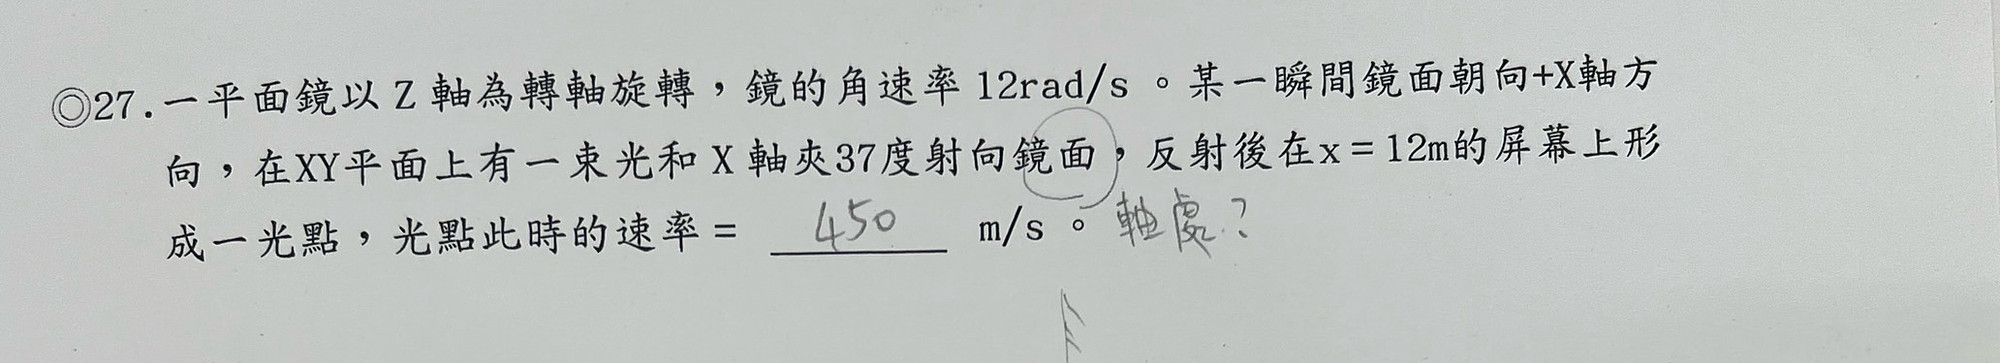 ◎27.一平面鏡以 Z 軸為轉軸旋轉,鏡的角速率 12rad/s 。某一瞬間鏡面朝向+X軸方
向,在XY平面上有一束光和 X 軸夾37度射向鏡面,反射後在x=12m的屏幕上形
成一光點,光點此時的速率= 450 m/s 。軸處?